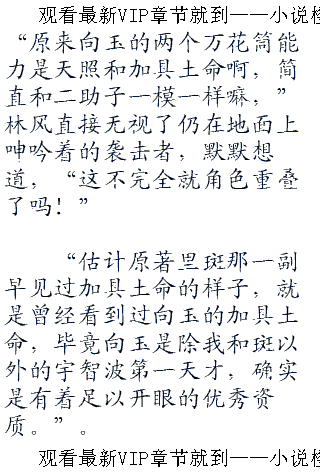 观看最新VIP章节就到——小说检
“原来向玉的两个万花筒能
力是天照和加具土命啊，简
直和二助子一模一样嘛，”
林风直接无视了仍在地面上
呻吟着的袭击者，默默想
道，“这不完全就角色重叠
了吗！”
“估计原著里斑那一副
早见过加具土命的样子，就
是曾经看到过向玉的加具土
命，毕竟向玉是除我和斑以
外的宇智波第一天才，确实
是有着足以开眼的优秀资
质。”。
观看最新VIP章节就到——小说检